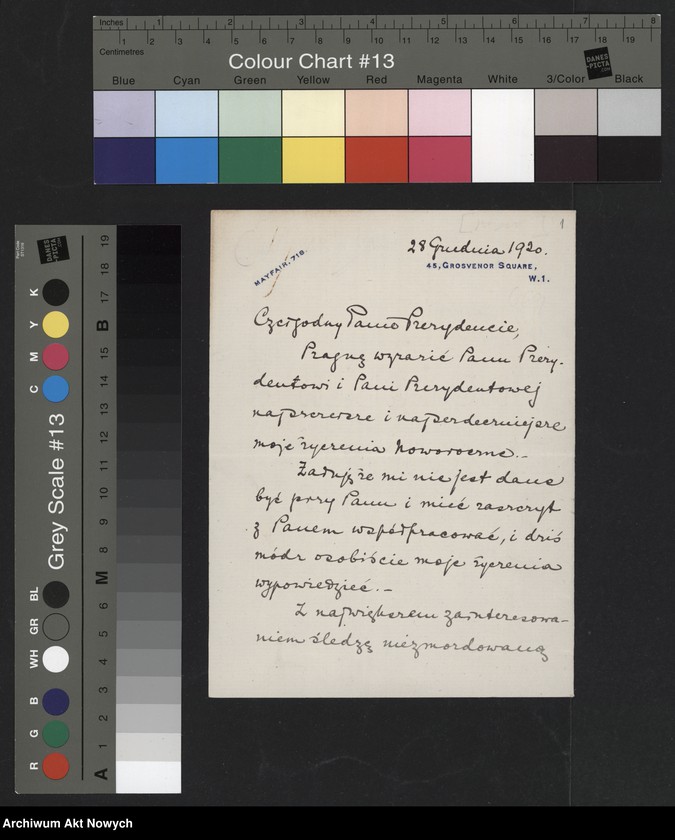 Inches 1 2 3 4 5 6 7 8
Centimetres 1 2 3 4 5 6 7 8 9 10 11 12 13 14 15 16 17 18 19
Colour Chart #13
DANES-PICTA.COM
Blue Cyan Green Yellow Red Magenta White 3/Color Black
1
28 Grudnia 1920.
MAYFAIR. 718
45, GROSVENOR SQUARE,
W.1.
Czcigodny Panie Prezydencie,
Pragnę wyrazić Panu Prezy-
dentowi i Pani Prezydentowej
najszczersze i najserdeczniejsze
moje życzenia Noworoczne.-
Żałuję że mi nie jest dane
być przy Panu i mieć zaszczyt
z Panem współpracować, i dziś
módz osobiście moje życzenia
wypowiedzieć.-
Z największem zainteresowa-
niem śledzę niezmordowaną
Grey Scale #13
DANES-PICTA
R G B WH GR BL C M Y K
A 1 2 3 4 5 6 M 8 9 10 11 12 13 14 15 B 17 18 19
Archiwum Akt Nowych